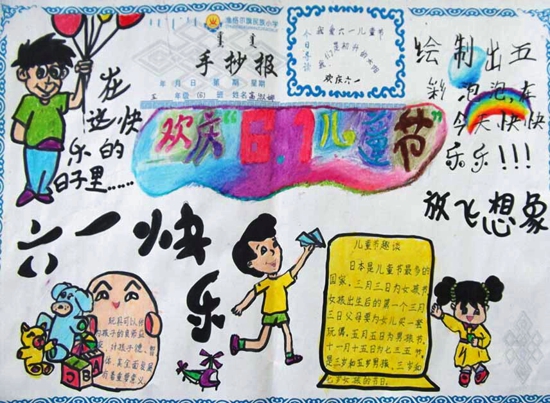 准格尔旗民族小学
手抄报
年 月 日 第 期 星期
年级 班 姓名
今日寄语
我爱六一儿童节
我们是祖国的
欢庆六一
绘制出五
彩泡泡,在
今天快快
乐乐!!!
在
这快
乐的
日子里……
欢庆“6.1儿童节”
放飞想象
六一快乐
玩具可以
让孩子德、智
体、美全面发
儿童节趣谈
日本是儿童节最多的
国家,三月三日为女孩节
女孩出生后的第一个三月
三日父母要为女儿买一套
玩偶,五月五日为男孩节,
十一月十五日为七五三节,
是三岁和五岁男孩,三岁和
七岁女孩的节日。
ABC